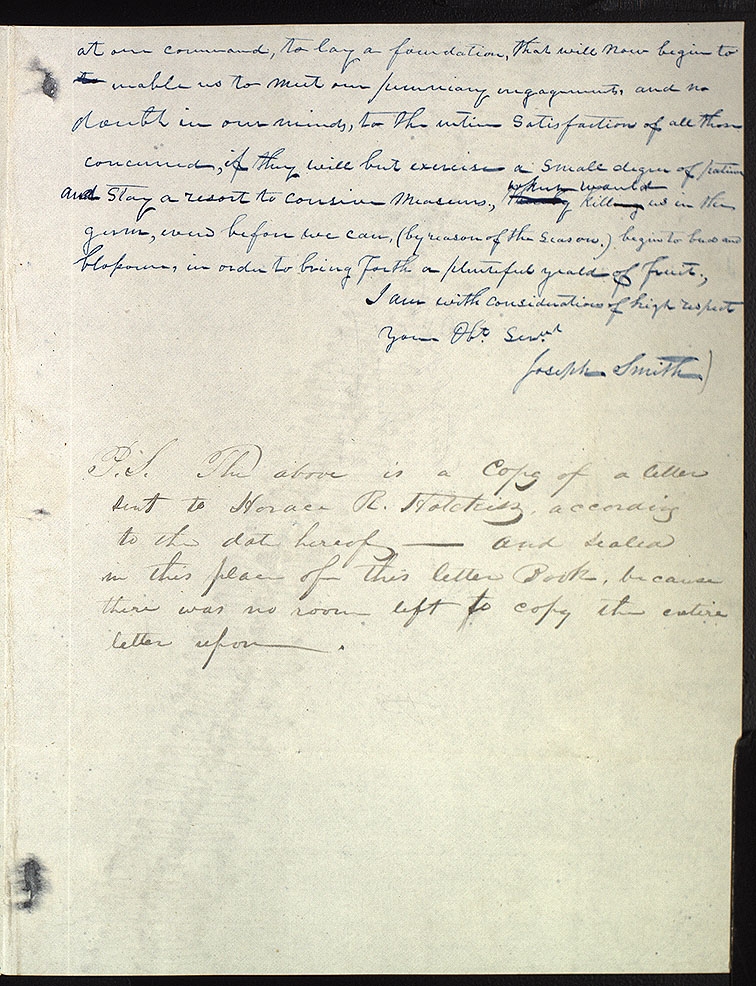 at our command, to lay a foundation, that will now begin to
to inable us to meet our pecuniary engagements, and no
doubt in our minds, to the intire Satisfaction of all those
concerned, if they will but exercise a small degree of patience
and Stay a resort to coersive Measures, which would
thereby killing us in the
germ, even before we can, (by reason of the Season,) begin to bud and
blossom, in order to bring forth a plenteful yeald of fruit.,
I am with considerations of high respect
Your Obt. Servt.
Joseph Smith)
P.S. The above is a Copy of a letter
sent to Horace R. Hotchkiss, according
to the date hereof — and sealed
in this place of this letter Book, because
there was no room left to copy the entire
letter upon — .